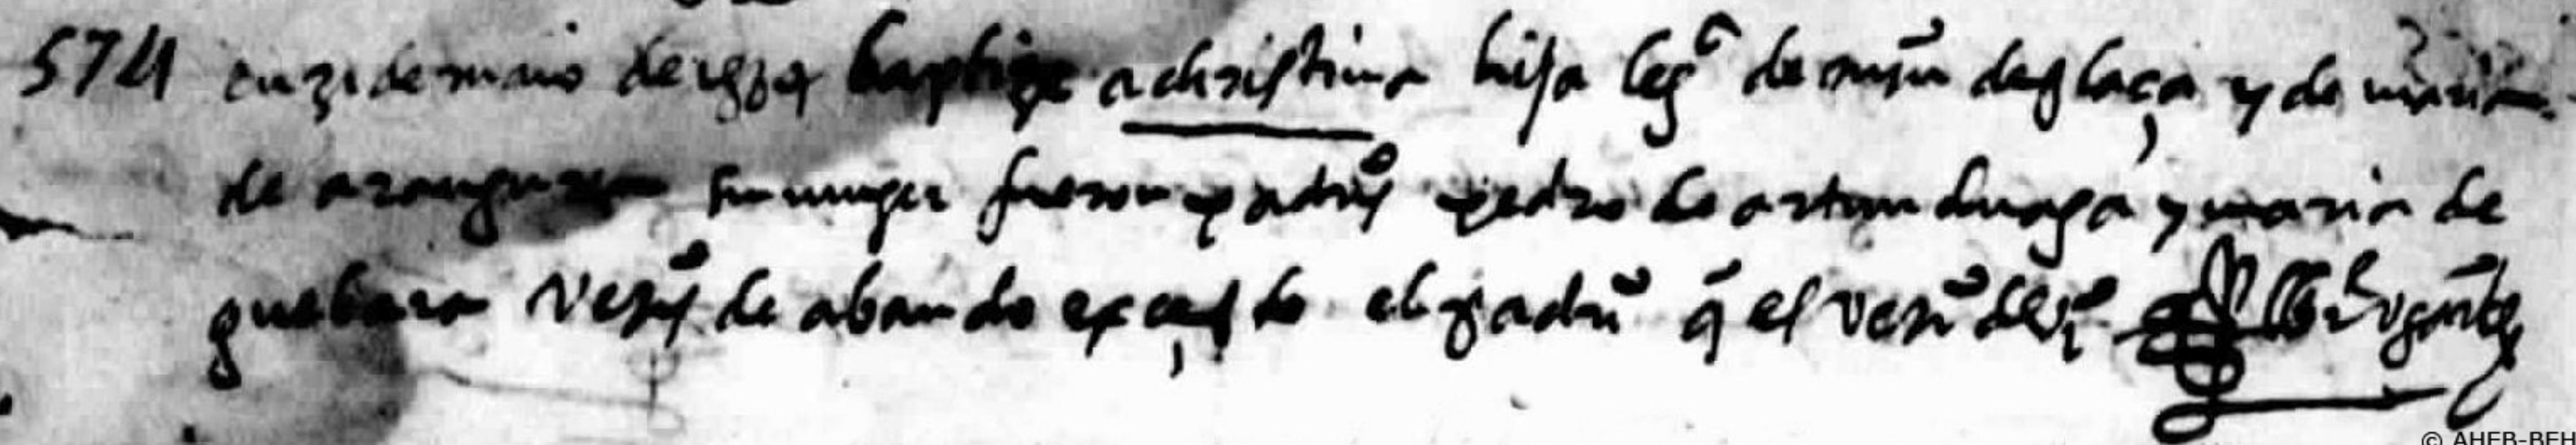 574 en 31 de maio de 1579 baptize a christina hija legᵃ de mīn de g laça y de maria
de aranguren su muger fueron padrˢ pedro de artunduaga y maria de
guebara vesˢ de abando excepto el padrº q̃ es vesº de
© AHEB-BEH